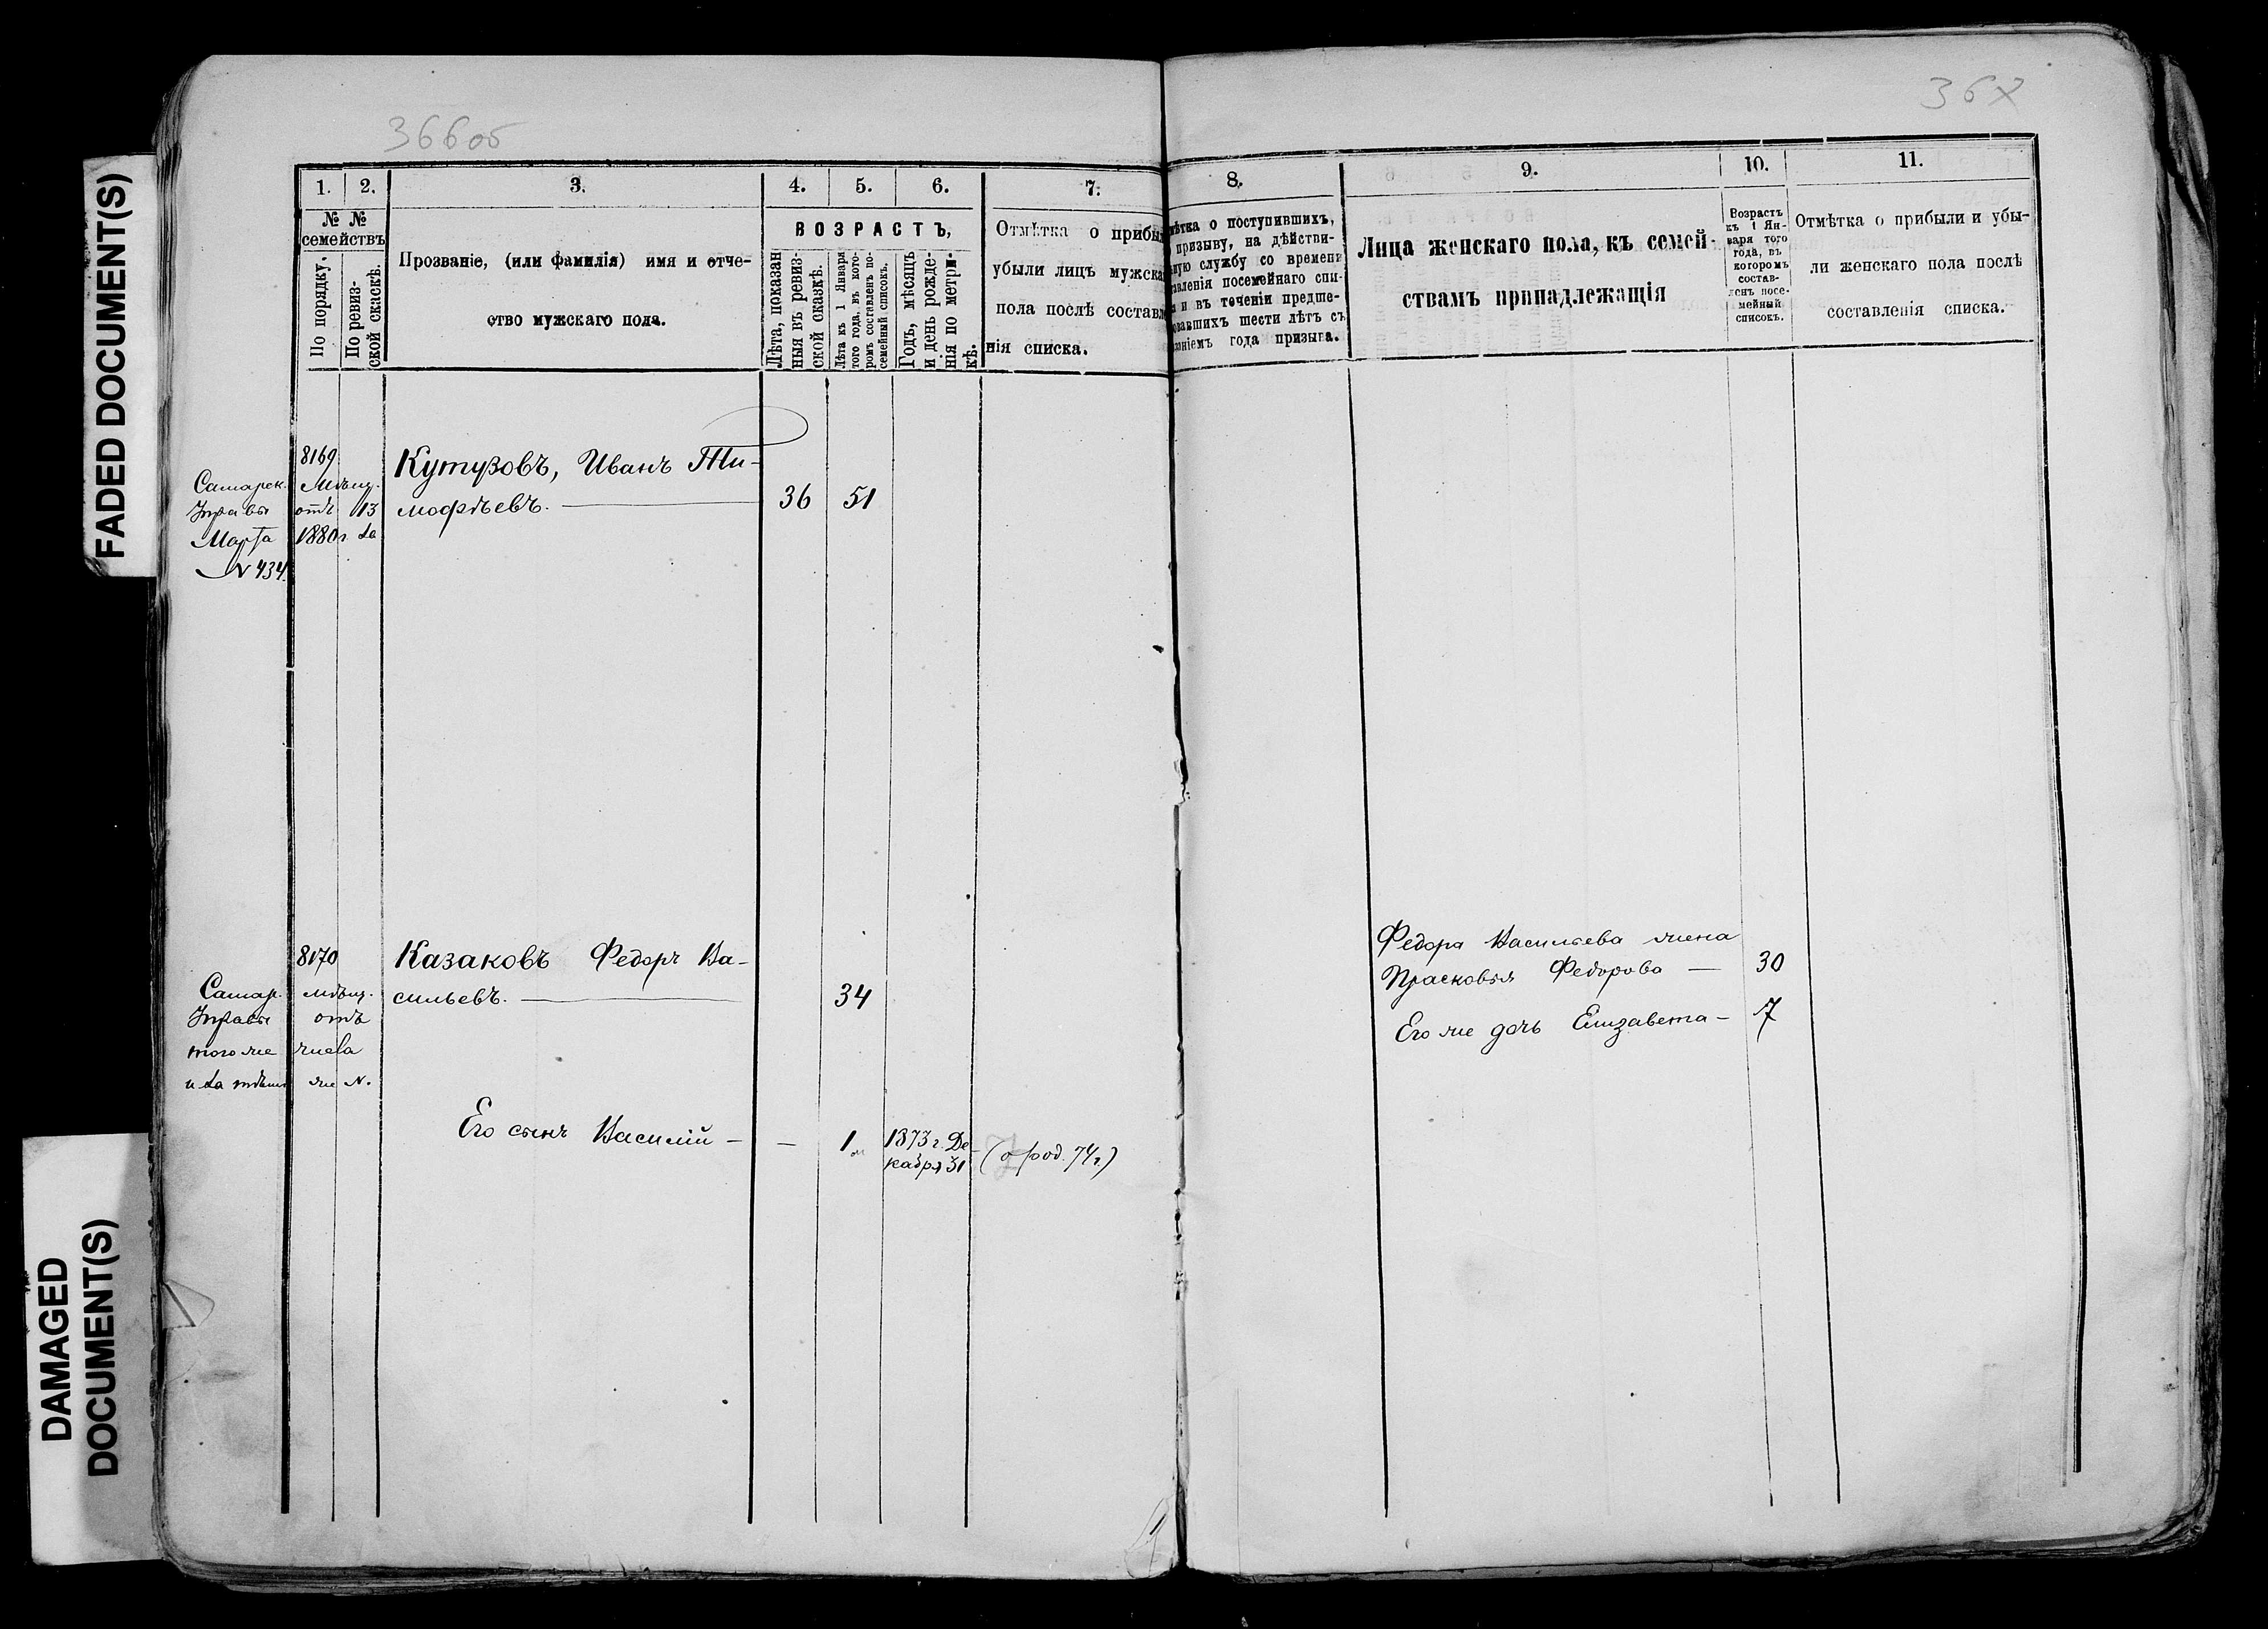 FADED DOCUMENT(S)
DAMAGED
DOCUMENT(S)
366об
1.
2.
3.
4.
5.
6.
7.
№ №
семействъ
По порядку.
По ревиз-
ской сказкѣ.
Прозваніе, (или фамилія) имя и отче-
ство мужскаго пола.
ВОЗРАСТЪ,
Лѣта, показан
ныя въ ревиз-
ской сказкѣ.
Лѣта къ 1 Января
того года, въ кото-
ромъ составленъ по-
семейный списокъ.
Годъ, мѣсяцъ
и день рожде-
нія по метри-
кѣ.
Отмѣтка о прибы
убыли лицъ мужска
пола послѣ составл
нія списка.
8169
Кутузовъ, Иванъ Ти-
мофѣевъ.
36
51
Самарск. Мѣщ.
Управы отъ 13
Марта 1880 г. за
№ 434.
8170
Казаковъ Федоръ Ва-
сильевъ.
34
Самар. мѣщ.
Управы отъ
того же числа
и за тѣмъ же №.
Его сынъ Василій –
–
1
1873 г. Де-
кабря 31
(о род. 74 г.)
8.
9.
10.
11.
мѣтка о поступившихъ,
призыву, на дѣйстви-
ную службу со времени
тавленія посемейнаго спи-
и въ теченіи предше-
овавшихъ шести лѣтъ съ
заніемъ года призыва.
Лица женскаго пола, къ семей-
ствамъ принадлежащія
Возрастъ
къ 1 Ян-
варя того
года, въ
которомъ
состав-
ленъ посе-
мейный
списокъ.
Отмѣтка о прибыли и убы-
ли женскаго пола послѣ
составленія списка.
Федора Васильева жена
Прасковья Федорова –
30
Его же дочь Елизавета –
7